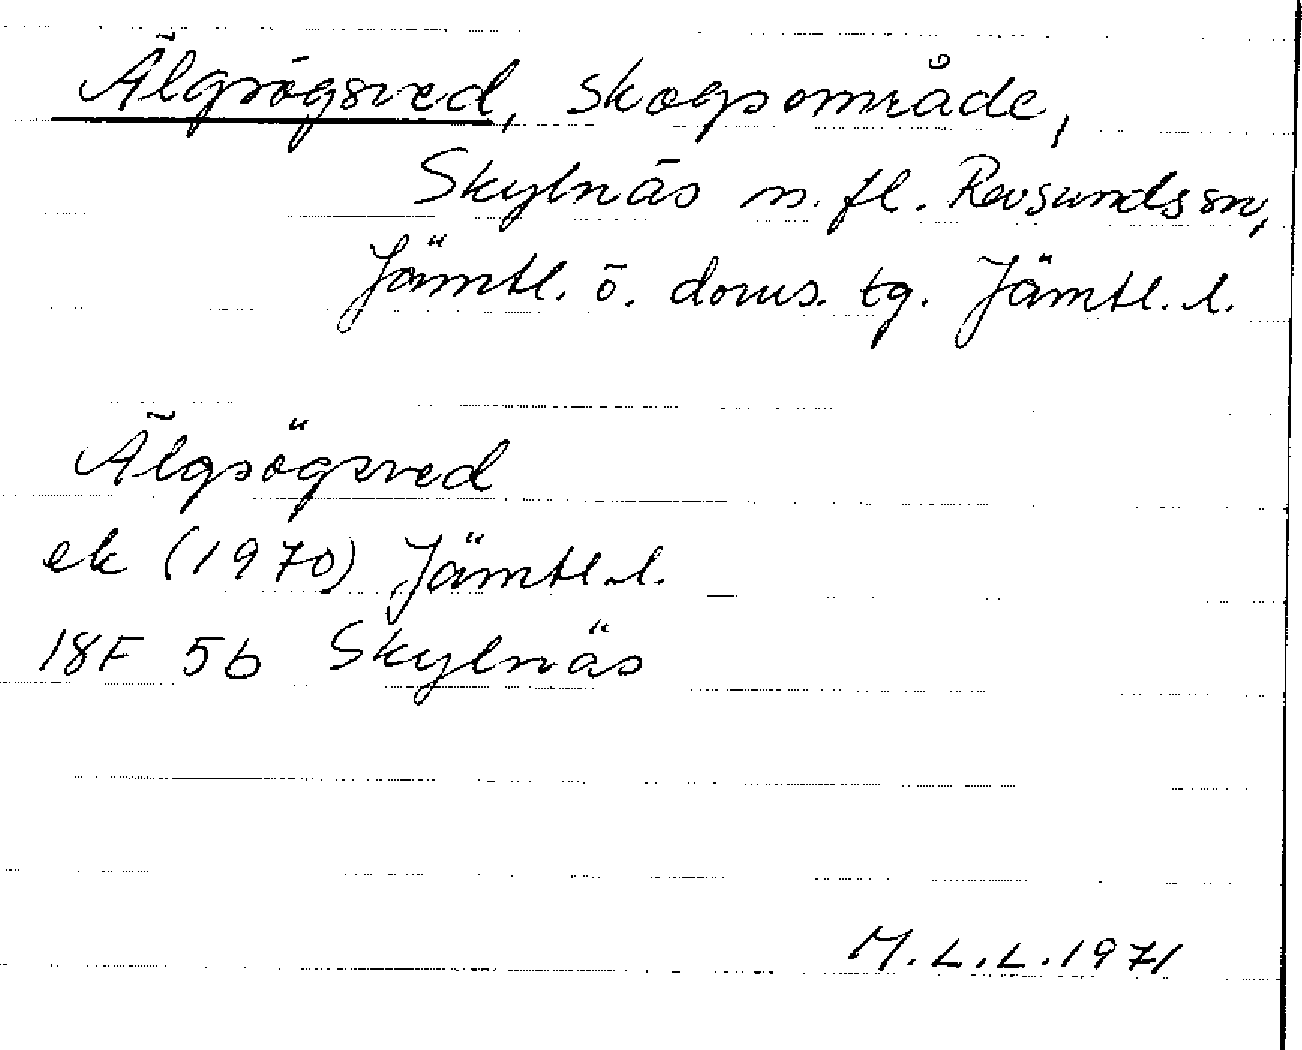 Älgsögsved, skogsområde,
Skylnäs m. fl. Revsunds sn,
Jämtl. ö. doms. tg. Jämtl. l.
Älgsögsved
ek (1970) Jämtl. l.
18F 5b Skylnäs
M. L. L. 1971